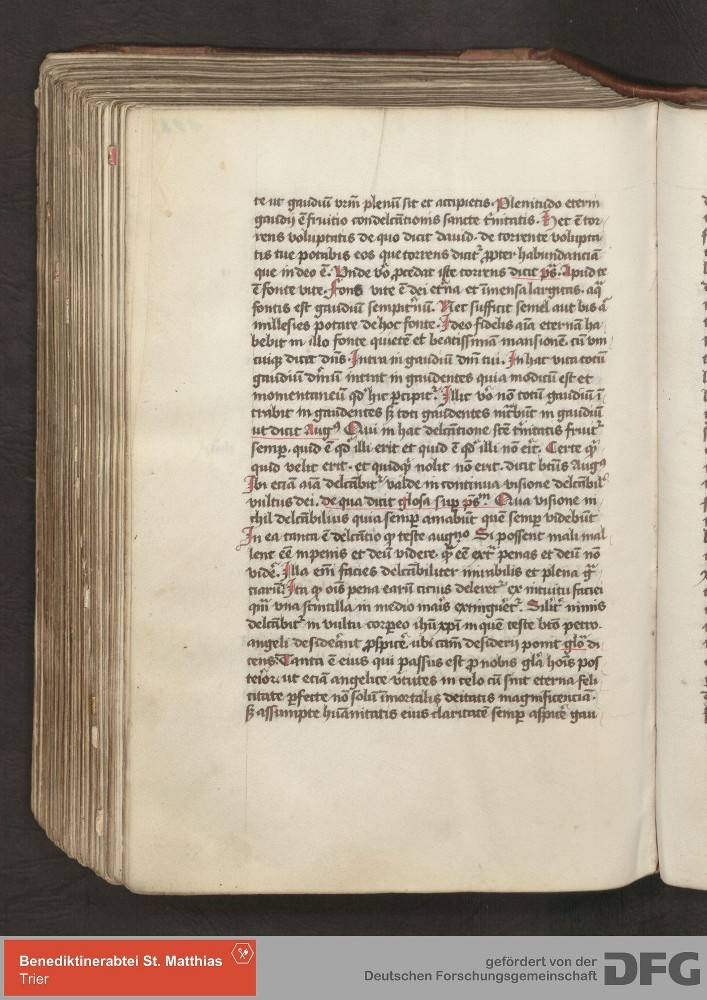 te ut gaudiū vrm̄ plenū sit et accipietis. Plenitudo eterni
gaudij ē fruitio condelc̄tationis sancte t'nitatis. Hec ē tor
rens voluptatis de quo dicit dauid. de torrente volupta
tis tue potabis eos que torrens dicit᷑ ꝓpter habundanciā
que in deo ē. Vnde v̊o ꝓcedat iste torrens dicit ps̄. Apud te
ē fons vite. Fons vite ē dei et'na et īmensa largitas. aq̄
fontis est gaudiū sempit'nū. Nec sufficit semel aut bis aͭ
millesies potare de hoc fonte. Ideo fidelis aīa eternā ha
bebit in illo fonte quietē et beatissimā mansionē. cū vni
cuiqꝫ dicit dn̄s. Intra in gaudiū dn̄i tui. In hac vita totū
gaudiū dn̄iū intrat in gaudentes quia modicū est et
momentaneū qd̓ hic ꝑcipit᷑. Illic v̊o nō totū gaudiū ī
trabit in gaudentes sꝫ toti gaudentes int̓būt in gaudiū
ut dicit Augꝰ Qui in hac delc̄tatione sc̄te t'nitatis fruit᷑
semꝑ. quid ē qd̓ illi erit et quid ē qd̓ illi nō erit. Certe qͥcͥ
quid velit erit. et quidqͥd nolit nō erit. dicit btūs Augꝰ
Ibi eciā aīa delc̄tabit᷑ valde in continua visione delc̄tabil᷑
vultus dei. de qua dicit glosa suꝑ ps̄m. Qua visione ni
chil delc̄tabilius quia semꝑ amabūt quē semꝑ videbūt
In ea tanta ē delc̄tatio qͩ teste augꝰno Si possent mali mal
lent eē in penis et deū videre. qͣ eē ext̓ penas et deū nō
vidē. Illa em̄ facies delc̄tabiliter mirabilis et plena gͣ
ciarū. Ita qͩ oīs pena earū cicius deleret᷑ ex intuitu faciei
qm̄ vna scintilla in medio maris extinguet᷑. Silit᷑ nimis
delc̄tabit᷑ in vultu corꝑeo ihū xp̄i in quē teste bt̄o petro.
angeli desiderāt ꝓspicē. ubi cām desiderij ponit glo᷑ di
cens: Tanta ē eius qui passus est ꝓ nobis glͣa hoīs pos
teīor ut eciā angelice v̓tutes in celo cū sint eterna feli
citate ꝑfecte nō solū īmortalis deitatis magnificenciā.
sꝫ assumpte hūanitatis eius claritatē semꝑ aspicē gau
Benediktinerabtei St. Matthias
Trier
gefördert von der
Deutschen Forschungsgemeinschaft
DFG